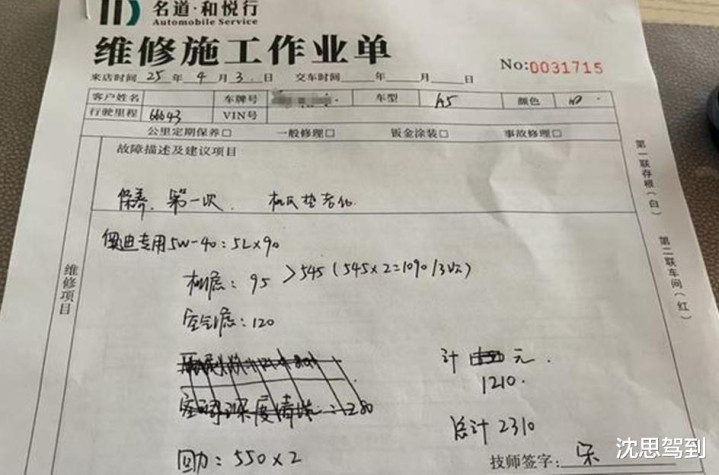 名道·和悦行
Automobile Service
维修施工作业单
No:0031715
来店时间 25 年 4 月 3 日 交车时间 年 月 日
客户姓名 车牌号 车型 A5 颜色
行驶里程 66643 VIN号
公里定期保养□ 一般修理□ 钣金涂装□ 事故修理□
故障描述及建议项目
保养,第一次. 机瓦垫老化
维修项目
奥迪专用5W-40:5L×90
机滤:95 >545(545×2=1090/3次)
空气滤:120
计 元.
1210.
:280
总计 2310
回力:550×2
技师签字: 宋
第一联存根(白)
第二联车间(红)
沈思驾到